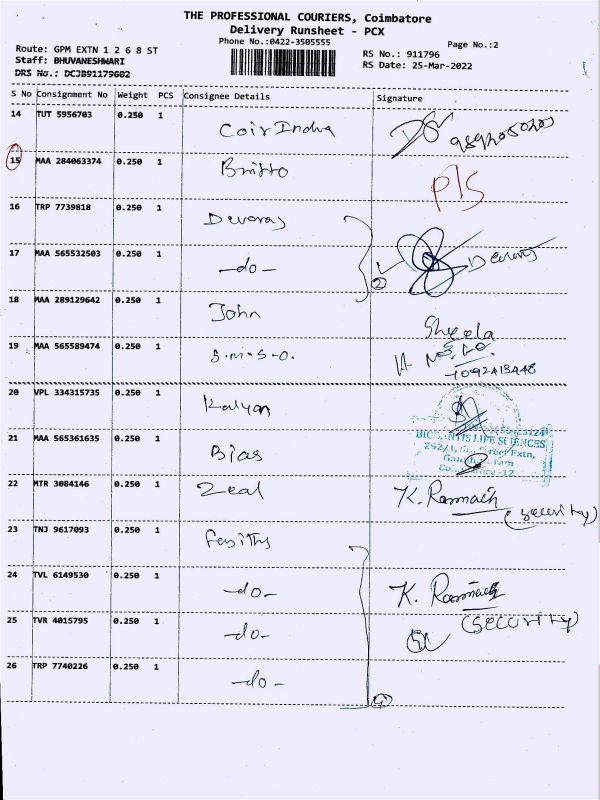 THE PROFESSIONAL COURIERS, Coimbatore
Delivery Runsheet - PCX
Phone No.:0422-3505555
Page No.:2
Route: GPM EXTN 1 2 6 8 ST
Staff: BHUVANESHWARI
DRS No.: DCJB91179602
RS No.: 911796
RS Date: 25-Mar-2022
S No Consignment No Weight PCS Consignee Details Signature
14 TUT 5956703 0.250 1 Coir India
15 MAA 284063374 0.250 1 Britto P/S
16 TRP 7739818 0.250 1 Devaraj
17 MAA 565532503 0.250 1 -do- 2
18 MAA 289129642 0.250 1 John Sheela
19 MAA 565589474 0.250 1
20 VPL 334315735 0.250 1 Kalyan
21 MAA 565361635 0.250 1 Bias
LIFE SCIENCES
292/1,
Extn,
22 MTR 3084146 0.250 1 Zeal K.
(security)
23 TNJ 9617093 0.250 1
24 TVL 6149530 0.250 1 -do- K.
(security)
25 TVR 4015795 0.250 1 -do-
26 TRP 7740226 0.250 1 -do- 4